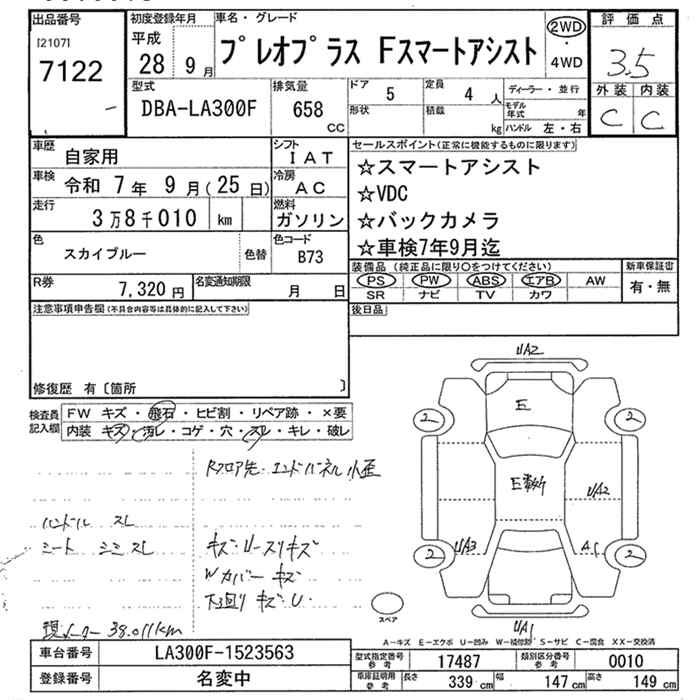 出品番号 [2107] 7122
初度登録年月 平成 28 9月
車名・グレード プレオプラス Fスマートアシスト
2WD・4WD
評価点 3.5
外装 内装
C C
型式 DBA-LA300F
排気量 658 CC
ドア 5 定員 4 人
形状 積載 kg
ディーラー・並行
モデル年式 年
ハンドル 左・右
車歴 自家用
シフト IAT
車検 令和 7年 9月(25日)
冷房 AC
走行 3万8千010 km
燃料 ガソリン
色 スカイブルー 色替
色コード B73
R券 7,320円
名変通知期限 月 日
セールスポイント(正常に機能するものに限ります)
☆スマートアシスト
☆VDC
☆バックカメラ
☆車検7年9月迄
装備品 (純正品に限り○をつけてください)
PS PW ABS エアB AW
SR ナビ TV カワ
新車保証書
有・無
後日品
注意事項申告欄(不具合内容等は具体的に記入して下さい)
修復歴 有〔箇所 〕
検査員記入欄
FW キズ・飛石・ヒビ割・リペア跡・×要
内装 キズ・汚レ・コゲ・穴・スレ・キレ・破レ
Rフロア先・エンドパネル小歪
ハンドル スレ
シート シミ スレ
キズ・U・スリキズ
Wカバー キズ
下廻りキズU・
現メーター 38.011km
UA2
E
2 2
E多数所
UA2
UA3
A1
2 2
UA1
スペア
A-キズ E-エクボ U-凹み W-補修跡 S-サビ C-腐食 XX-交換済
車台番号 LA300F-1523563
登録番号 名変中
型式指定番号 参考 17487
類別区分番号 参考 0010
車庫証明用 参考 長さ 339 cm 幅 147 cm 高さ 149 cm